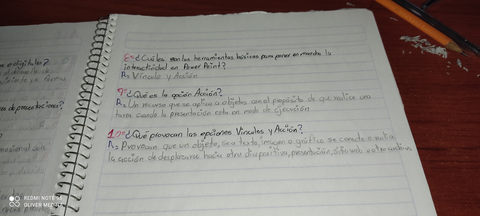 8-¿Cuáles son las herramientas básicas para poner en marcha la
interactividad en Power Point?
R= Vínculo y Acción
9-¿Qué es la opción Acción?
R= Un recurso que se aplica a objetos con el propósito de que realice una
tarea cuando la presentación este en modo de ejecución
10-¿Qué provocan las opciones Vínculos y Acción?
R= Provocan que un objeto, sea texto, imagen o gráfico se conecte o realice
la acción de desplazarse hacia otra diapositiva, presentación, sitio web u otro archivo
o digitales?
de presentaciones?
REDMI NOTE
OLIVER